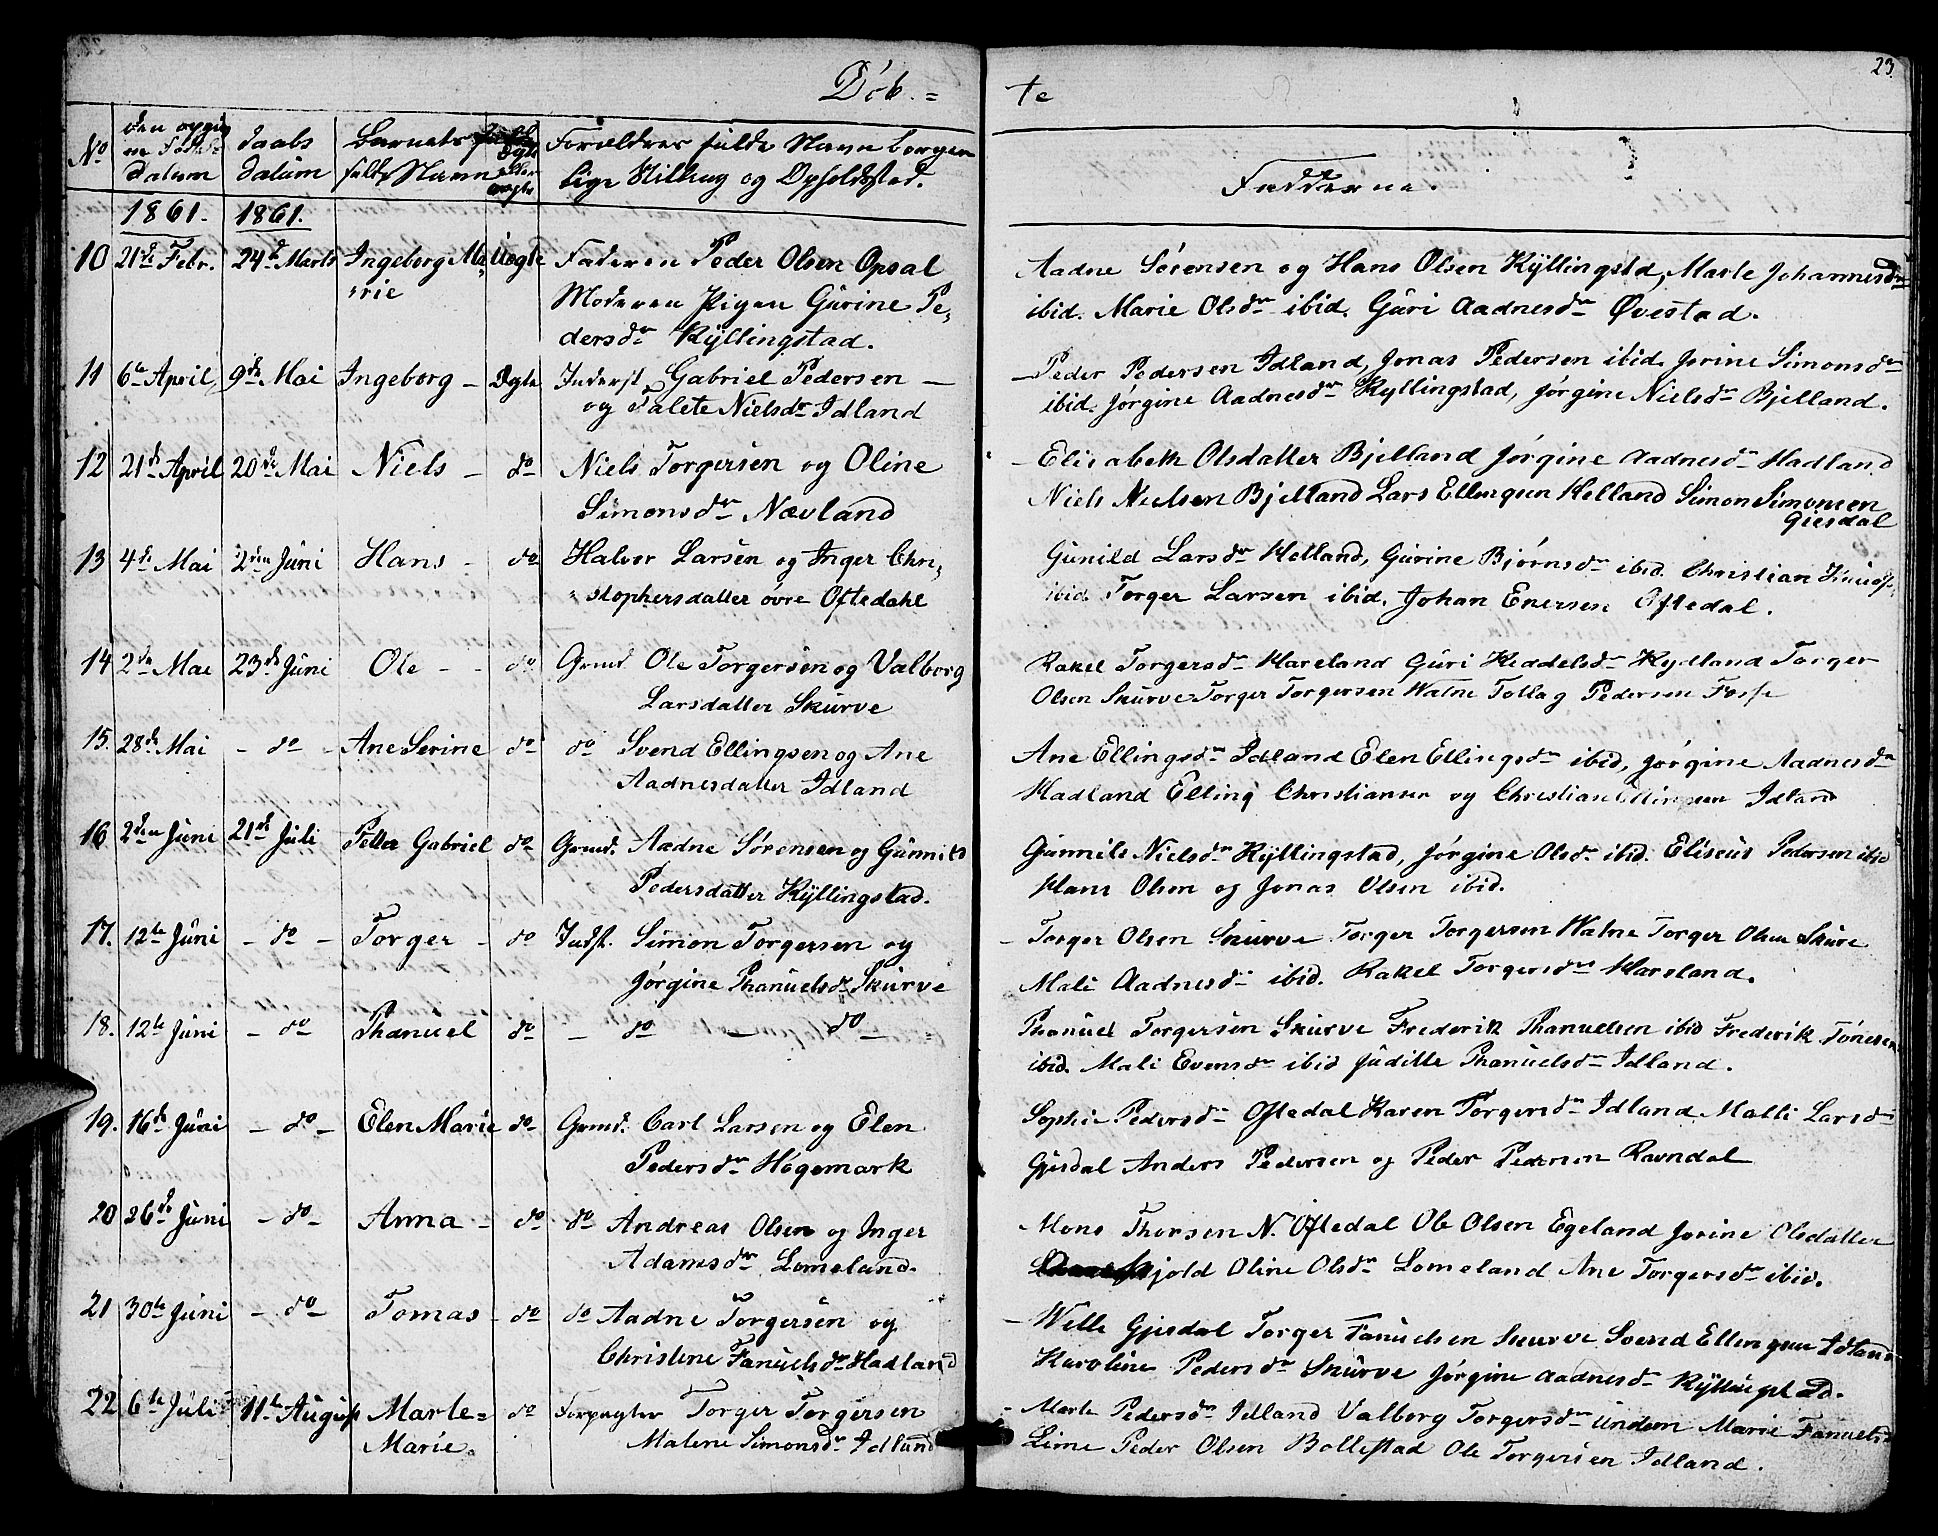 Døb = te
23
No
den opgivne Fødsels Datum
Daabs Datum
Barnets fulde Navn
Ægte eller uægte
Forældres fulde Navn borgerlige Stilling og Opholdssted.
Fadderne.
1861. 1861.
10 21de Febr. 24de Marts Ingeborg Ma Uægte Faderen Peder Olsen Opsal
rie Moderen Pigen Gurine Pe
dersdr Kyllingstad.
Aadne Sørensen og Hans Olsen Kyllingstd, Marte Johannesdr
ibid. Marie Olsdr ibid. Guri Aadnesdr Øvestad.
11 6te April 9de Mai Ingeborg – Ægte Inderst Gabriel Pedersen –
og Talete Nielsdr Idland
– Peder Pedersen Idland, Jonas Pedersen ibid. Jorine Simonsdr
ibid. Jørgine Aadnesdr Kyllingstad, Jørgine Nielsdr Bjelland.
12 21de April 20de Mai Niels – do Niels Torgersen og Oline
Simonsdr Nævland
– Elisabeth Olsdatter Bjelland Jørgine Aadnesdr Hadland
Niels Nielsen Bjelland Lars Ellingsen Helland Simon Simonsen
Giesdal
13 4de Mai 2den Juni Hans – do Halvor Larsen og Inger Chri
stophersdatter øvre Oftedahl
Gunild Larsdr Helland, Gurine Bjørnsdr ibid. Christian
ibid. Torger Larsen ibid. Johan Enersen Oftedal.
14 2de Mai 23de Juni Ole – – do Grmd. Ole Torgersen og Valborg
Larsdatter Skurve
Rakel Torgersdr Hareland Guri Keddelsdr Kydland Torger
Olsen Skurve Torger Torgersen Watne Tollag Pedersen Fosse
15. 28de Mai – do – Ane Serine do do Svend Ellingsen og Ane
Aadnesdatter Idland
Ane Ellingsdr Idland Elen Ellingsdr ibid, Jørgine Aadnesdr
Hadland Elling Christiansen og Christian Ellingsen Idland
16 2den Juni 21de Juli Petter Gabriel do Grmd. Aadne Sørensen og Gunnild
Pedersdatter Kyllingstad.
Gunnild Nielsdr Kyllingstad, Jørgine Olsdr ibid. Eliseus Pedersen ibid
Hans Olsen og Jonas Olsen ibid.
17. 12te Juni – do – Torger – do Indst. Simon Torgersen og
Jørgine Phanuelsdr Skurve
– Torger Olsen Skurve Torger Torgersen Watne Torger Olsen Skure
Mali Aadnesdr ibid. Rakel Torgersdr Hareland.
18. 12te Juni – do Phanuel do – do – do –
Phanuel Torgersen Skurve Frederik Phanuelsen ibid Frederik Tønesen
ibid. Mali Evensdr ibid Juditte Phanuelsdr Idland.
19. 16de Juni – do – Elen Marie do Grmd. Carl Larsen og Elen
Pedersdr Høgemark
Sophie Pedersdr Oftedal Karen Torgersdr Idland Malli Larsdr
Gjesdal Anders Pedersen og Peder Pedersen Ravndal
20 26de Juni – do – Anna – do do Andreas Olsen og Inger
Adamsdr Lomeland.
Mons Thorsen N. Oftedal Ole Olsen Egeland Jorine Olsdatter
Skjold Oline Olsdr Lomeland Ane Torgersdr ibid.
21 30te Juni – do – Tomas – do do Aadne Torgersen og
Christine Fanuelsdr Hadland
– Welle Gjesdal Torger Fanuelsen Skurve Svend Ellingsen Idland
Karoline Pedersdr Skurve Jørgine Aadnesdr Kyllingstad.
22 6te Juli 11te August Marte= do Forpagter Torger Torgersen
Marie. Malene Simonsdr Idland
– Marte Pedersdr Idland Valborg Torgersdr Undem Marie Fanuelsd
Lime Peder Olsen Bollestad Ole Torgersen Idland.